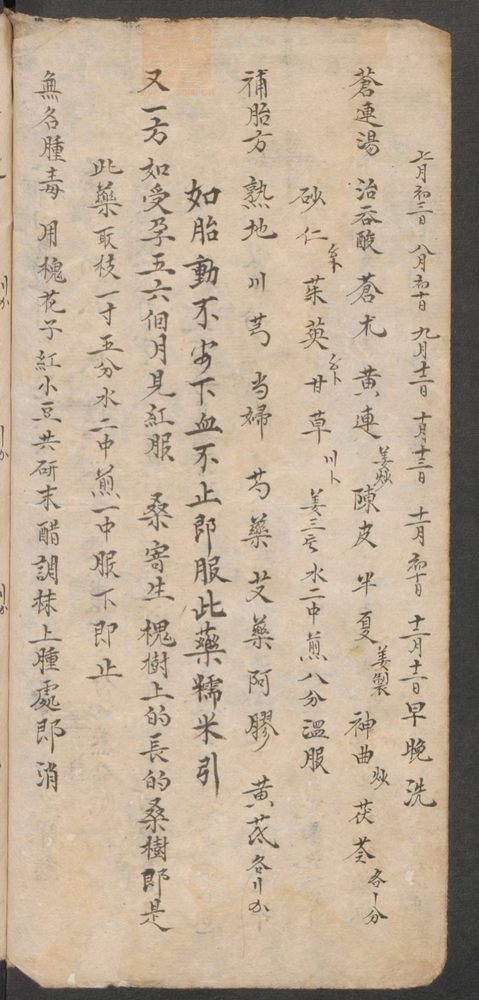 七月初三日 八月初十日 九月十二日 十月十三日 十一月初十日 十二月十一日早晚洗
蒼連湯 治吞酸 蒼朮 黄連姜炒 陳皮 半夏姜製 神曲炒 茯苓各〡分
砂仁 茱萸 甘草 姜三 水二中煎八分溫服
補胎方 熟地 川芎 当婦 芍藥 艾藥 阿膠 黄芪各
如胎動不安下血不止即服此藥糯米引
又一方如受孕五六個月見紅服 桑寄生槐樹上的長的桑樹即是
此藥取枝一寸五分水二中煎一中服下即止
無名腫毒 用槐花子紅小豆共研末醋調抹上腫處即消